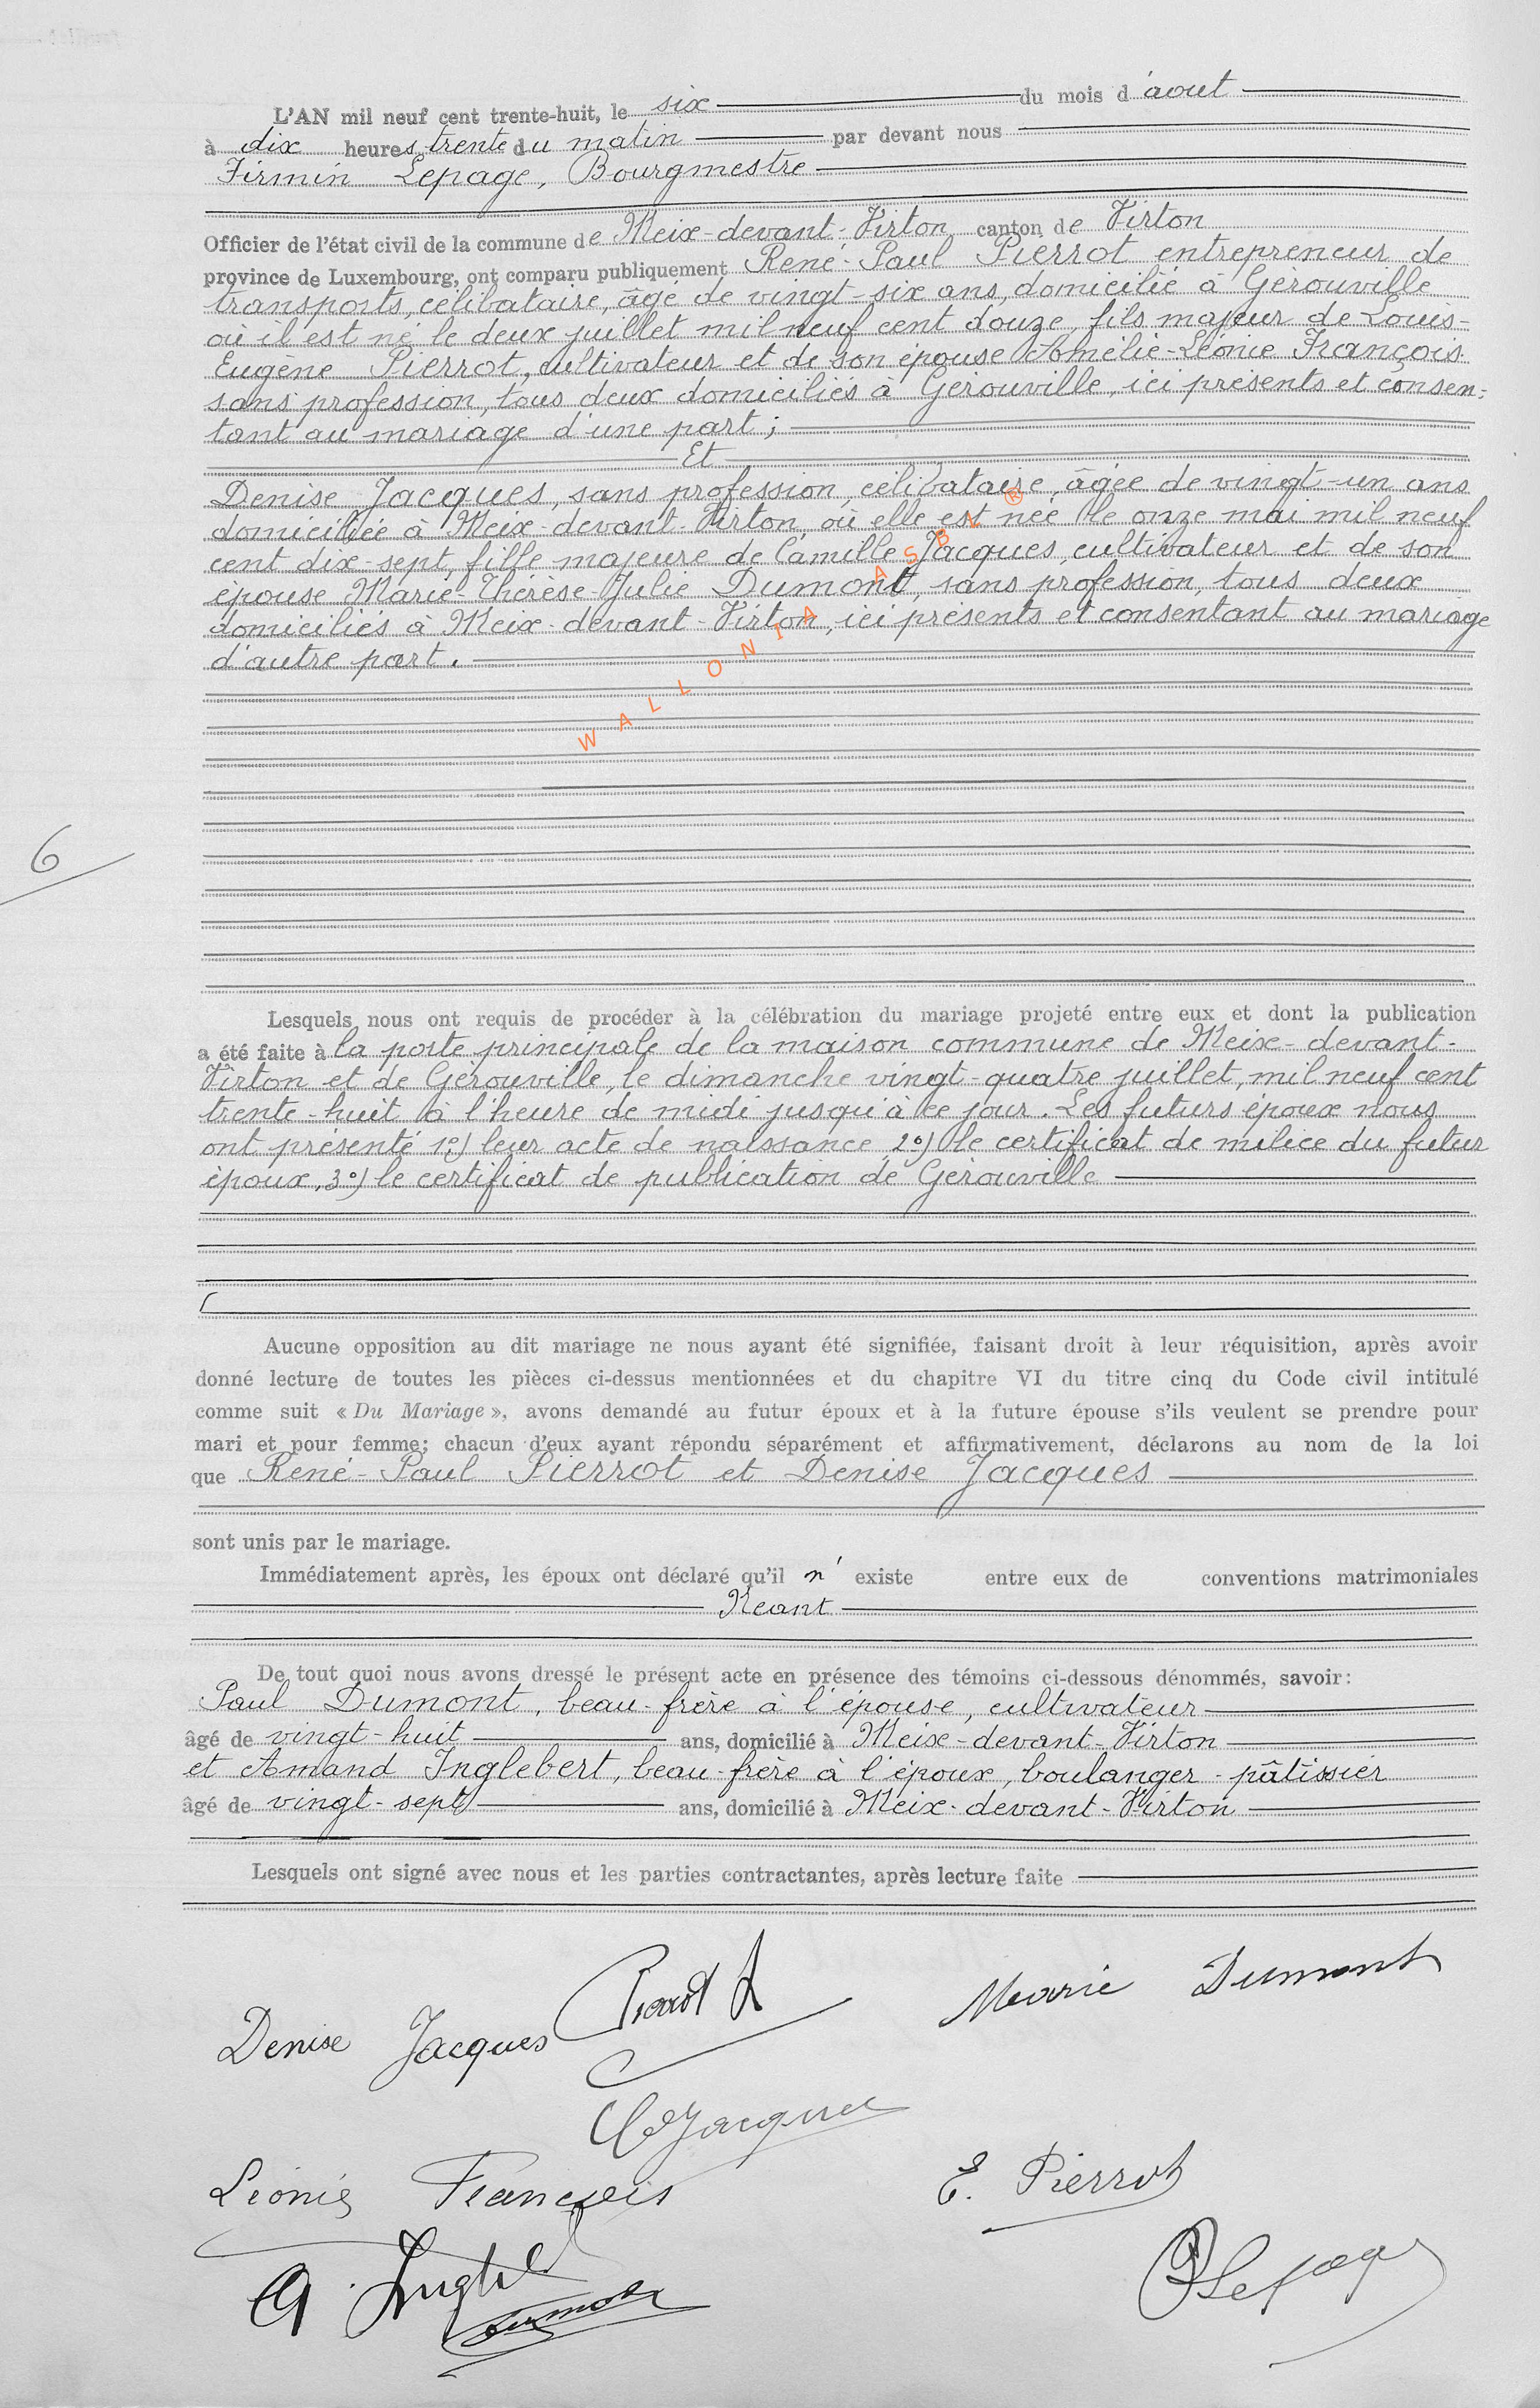 L'AN mil neuf cent trente-huit, le six du mois d'août
à dix heures trente du matin par devant nous
Firmin Lepage, Bourgmestre
Officier de l'état civil de la commune de Meix-devant-Virton canton de Virton
province de Luxembourg, ont comparu publiquement René-Paul Pierrot entrepreneur de
transports, célibataire, âgé de vingt-six ans, domicilié à Gérouville
où il est né le deux juillet mil neuf cent douze, fils majeur de Louis-
Eugène Pierrot, cultivateur et de son épouse Amélie-Léonie François
sans profession, tous deux domiciliés à Gérouville, ici présents et consen-
tant au mariage d'une part;
Et
Denise Jacques, sans profession, célibataire, âgée de vingt-un ans
domiciliée à Meix-devant-Virton, où elle est née, le onze mai mil neuf
cent dix-sept, fille majeure de Camille Jacques, cultivateur et de son
épouse Marie-Thérèse-Julie Dumont, sans profession, tous deux
domiciliés à Meix-devant-Virton, ici présents et consentant au mariage
d'autre part.
WALLONIA ASBL ®
6
Lesquels nous ont requis de procéder à la célébration du mariage projeté entre eux et dont la publication
a été faite à la porte principale de la maison commune de Meix-devant-
Virton et de Gérouville, le dimanche vingt-quatre juillet, mil neuf cent
trente-huit à l'heure de midi jusqu'à ce jour. Les futurs époux nous
ont présenté 1º) leur acte de naissance, 2º) le certificat de milice du futur
époux, 3º) le certificat de publication de Gérouville
Aucune opposition au dit mariage ne nous ayant été signifiée, faisant droit à leur réquisition, après avoir
donné lecture de toutes les pièces ci-dessus mentionnées et du chapitre VI du titre cinq du Code civil intitulé
comme suit « Du Mariage », avons demandé au futur époux et à la future épouse s'ils veulent se prendre pour
mari et pour femme; chacun d'eux ayant répondu séparément et affirmativement, déclarons au nom de la loi
que René-Paul Pierrot et Denise Jacques
sont unis par le mariage.
Immédiatement après, les époux ont déclaré qu'il n' existe entre eux de conventions matrimoniales
Néant
De tout quoi nous avons dressé le présent acte en présence des témoins ci-dessous dénommés, savoir:
Paul Dumont, beau-frère à l'épouse, cultivateur
âgé de vingt-huit ans, domicilié à Meix-devant-Virton
et Amand Inglebert, beau-frère à l'époux, boulanger-pâtissier
âgé de vingt-sept ans, domicilié à Meix-devant-Virton
Lesquels ont signé avec nous et les parties contractantes, après lecture faite
Marie Dumont
Denise Jacques Pierrot
Jacques
Léonie François E. Pierrot
Lepage
A. Inglebert
Dumont